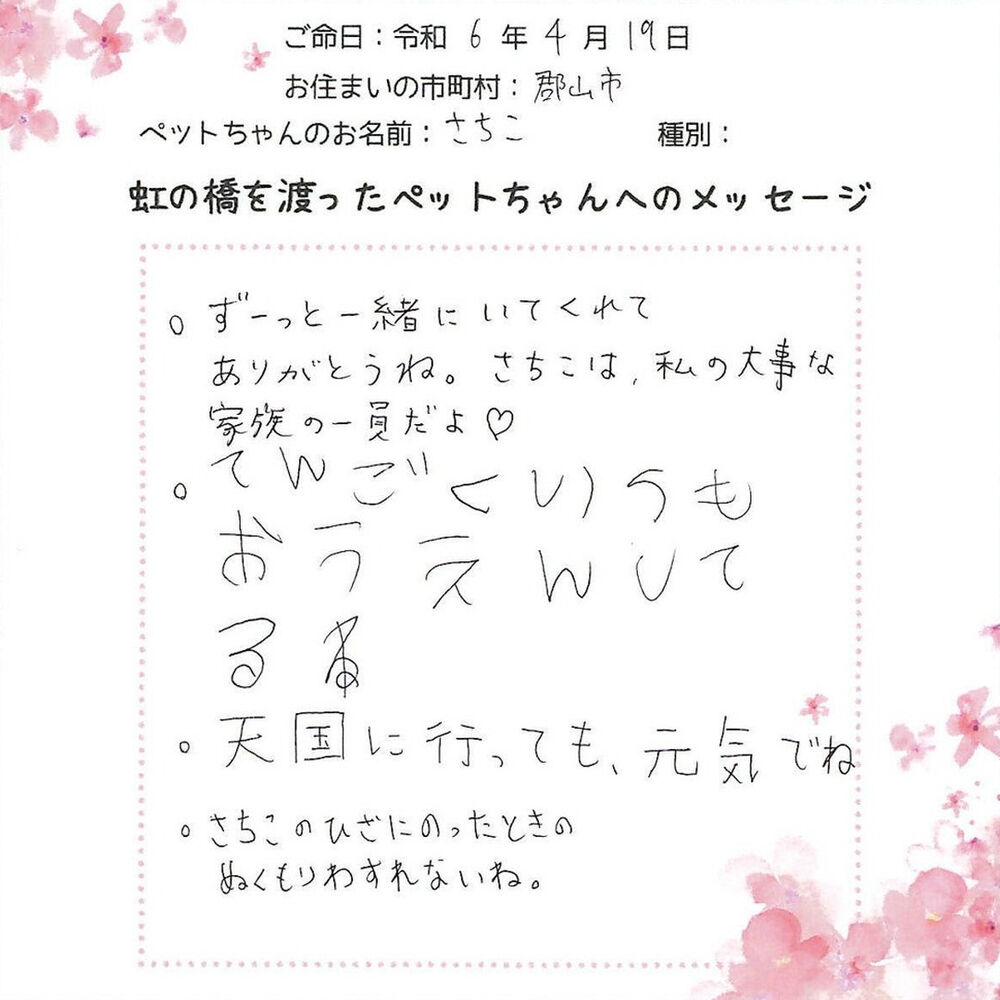 ご命日：令和 6 年 4 月 19 日
お住まいの市町村：郡山市
ペットちゃんのお名前：さちこ 種別：
虹の橋を渡ったペットちゃんへのメッセージ
○ ずーっと一緒にいてくれて
ありがとうね。さちこは、私の大事な
家族の一員だよ♡
○ てんごくいうも
おうえんして
るね
○ 天国に行っても、元気でね
○ さちこのひざにのったときの
ぬくもりわすれないね。